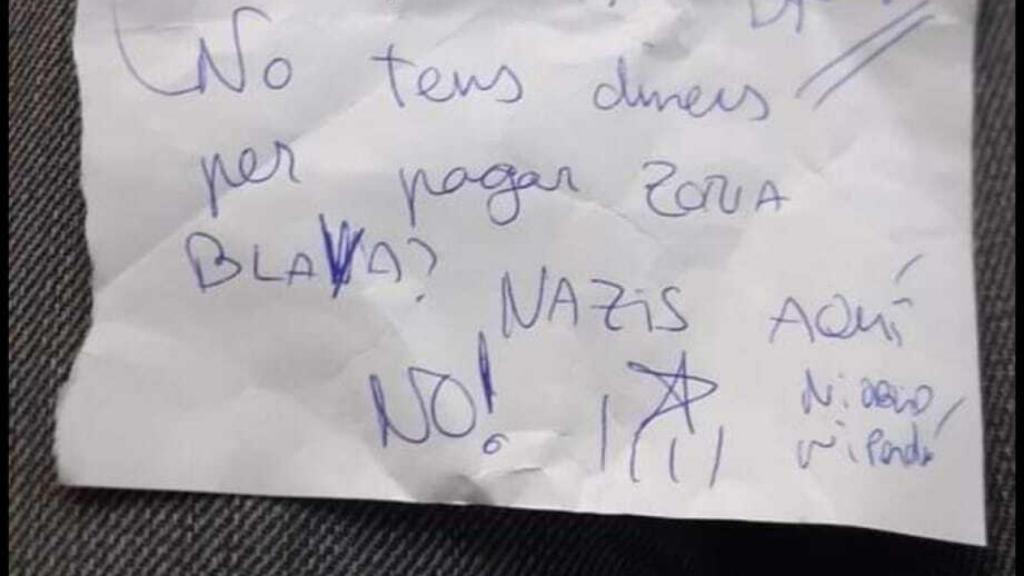 No tens diners
per pagar ZONA
BLAVA?
NAZIS AQUÍ
NO!
Ni oblid,
ni Perdó